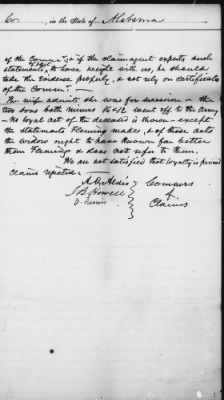 Co. , in the State of Alabama
of the Comrs. & if the claimagent expects such
statements to have weight with us, he should
take the evidence properly, & not rely on certificates
of the Comrs. —
The wife admits she was for secession — the
two sons both minors 16 & 18 went off to the Army
— No loyal act of the deceased is shown — except
the statements Fleming makes, & of those acts
the widow ought to have known far better
than Fleming & does not refer to them.
We are not satisfied that loyalty is proved
Claim rejected.
A. O. Aldis
J. B. Howell
O. Ferriss
Comrs
of
Claims